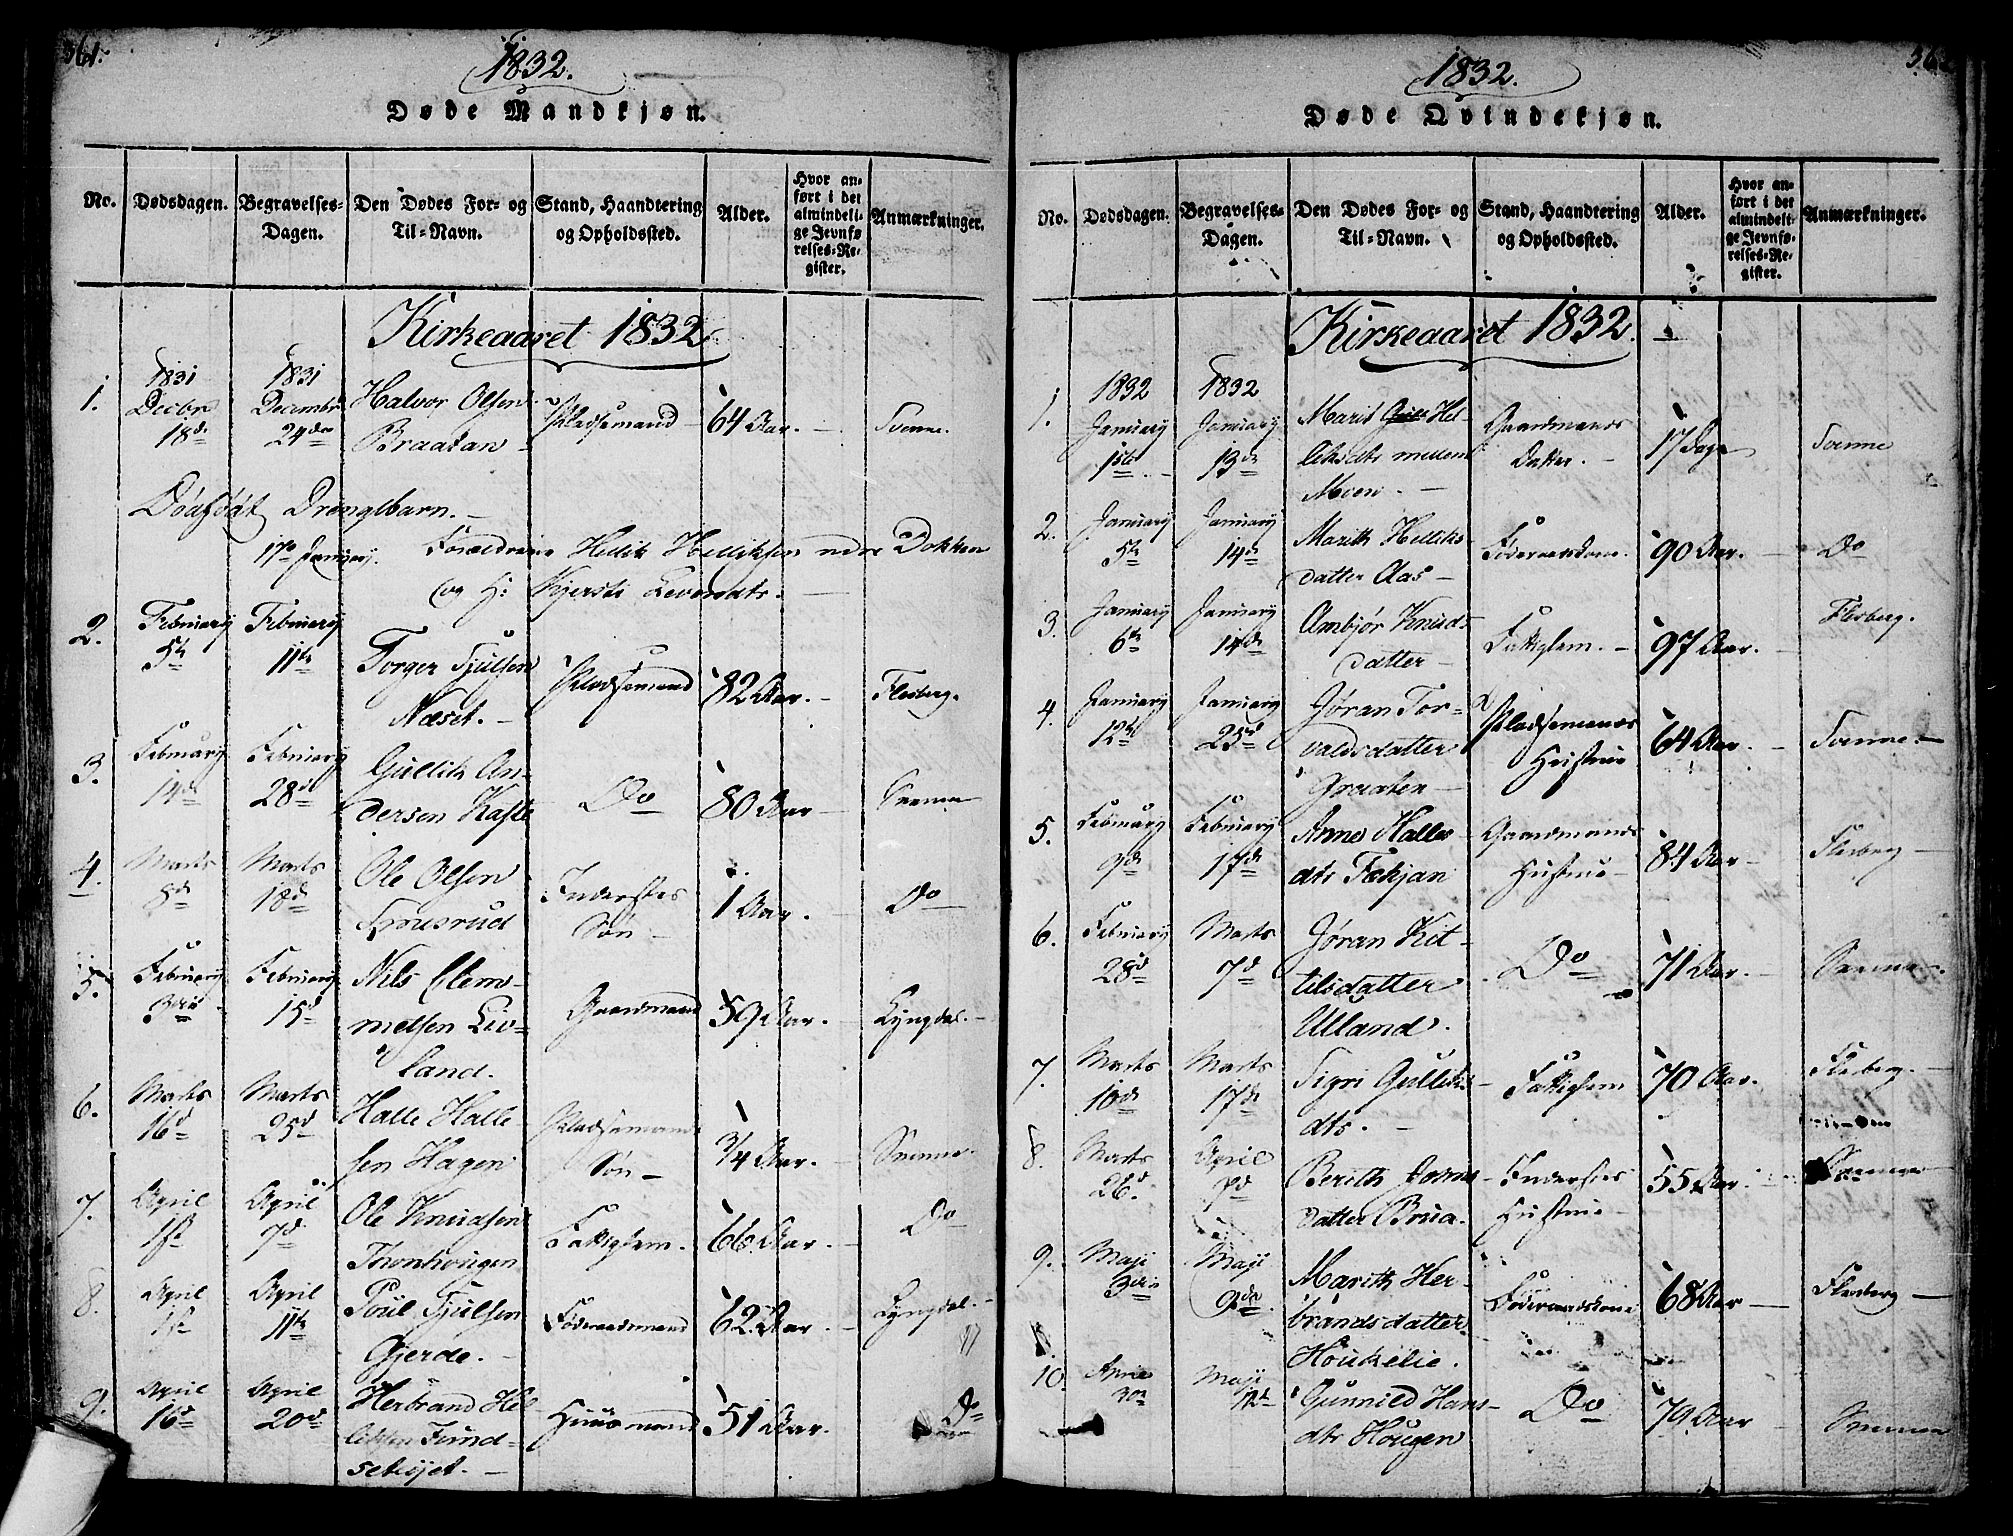 361.
1832.
Døde Mandkjøn.
No. Dødsdagen. Begravelses-Dagen. Den Dødes For- og Til-Navn. Stand, Haandtering og Opholdssted. Alder. Hvor anført i det almindelige Jevnførelses-Register. Anmærkninger.
Kirkeaaret 1832
1. 1831 Decbr 18de 1831 Decembr 24de Halvor Olsen Braatan Pladsemand 64 Aar. Svenne.
Dødfødt Drengbarn.
17de January. Forældrene Hellik Helliksen ndre Dokken
og H: Kjersti Levordts.
2. February 5te February 11te Torger Tjulsen Næset. Pladsemand 82 Aar. Flesberg.
3. February 14de February 28de Gullik Andersen Kaste Do 80 Aar Svenne
4. Marts 8de Marts 18de Ole Olsen 1 Aar. Inderstes Søn Do
5. February 3die February 15de Nils Clemmetsen Livland. Gaardmand 59 Aar. Lyngdal.
6. Marts 16de Marts 25de Halle Hallesen Hagen Pladsemands Søn 3/4 Aar. Svenne.
7. April 1ste April 7de Ole Knudsen Fattiglem. 66 Aar. Do
8. April 1ste April 11te Poul Tjulsen Gjerde. Føderaadsmand 62 Aar Lyngdal.
9. April 16de April 20de Herbrand Helliksen Huusmand 51 Aar. Do
1832.
Døde Qvindekjøn.
No. Dødsdagen. Begravelses-Dagen. Den Dødes For- og Til-Navn. Stand, Haandtering og Opholdssted. Alder. Hvor anført i det almindelige Jevnførelses-Register. Anmærkninger.
Kirkeaaret 1832.
1. 1832 January 1ste 1832 January 13de Marit Helliksdts mellem Moen. Gaardmands Datter. 17 Dage Svenne
2. January 5te January 14de Marith Helliksdatter Aas Føderaadskone. 90 Aar. Do
3. January 6te January 14de Ambjør Knudsdatter Fattiglem. 97 Aar. Flesberg.
4. January 12te January 25de Jøran Torvaldsdatter Graaten Pladsemands Hustrue 64 Aar. Svenne.
5. February 9de February 17de Anne Halles dts Tækjan Gaardmands Hustrue 84 Aar Flesberg
6. February 28de Marts 7de Jøran Kittilsdatter Ulland. Do 71 Aar. Svenne.
7. Marts 10de Marts 17de Sigri Gulliks dts. Fattiglem 70 Aar. Flesberg.
8. Marts 26de April 7de Berith datter Brua. Inderstes Hustrue 55 Aar. Svenne
9. Maji 3die Maji 9de Marith Herbrandsdatter Houkelie. Føderaadskone 68 Aar Flesberg
10. April Maji Gunnild Hansdts Hougen Do 79 Aar Svenne